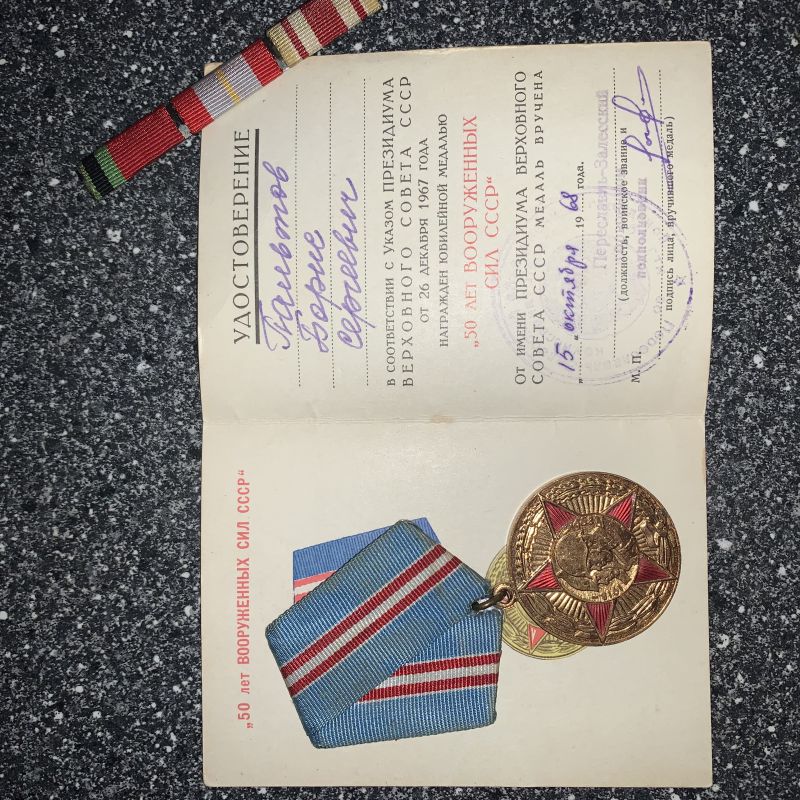 „50 лет ВООРУЖЕННЫХ СИЛ СССР“
УДОСТОВЕРЕНИЕ
Борис
Сергеевич
В СООТВЕТСТВИИ С УКАЗОМ ПРЕЗИДИУМА
ВЕРХОВНОГО СОВЕТА СССР
ОТ 26 ДЕКАБРЯ 1967 ГОДА
НАГРАЖДЕН ЮБИЛЕЙНОЙ МЕДАЛЬЮ
„50 ЛЕТ ВООРУЖЕННЫХ
СИЛ СССР“
ОТ ИМЕНИ ПРЕЗИДИУМА ВЕРХОВНОГО
СОВЕТА СССР МЕДАЛЬ ВРУЧЕНА
„15“ октября 1968 года.
Переславль-Залесский
(должность, воинское звание и
подполковник
М. П. подпись лица, вручившего медаль)